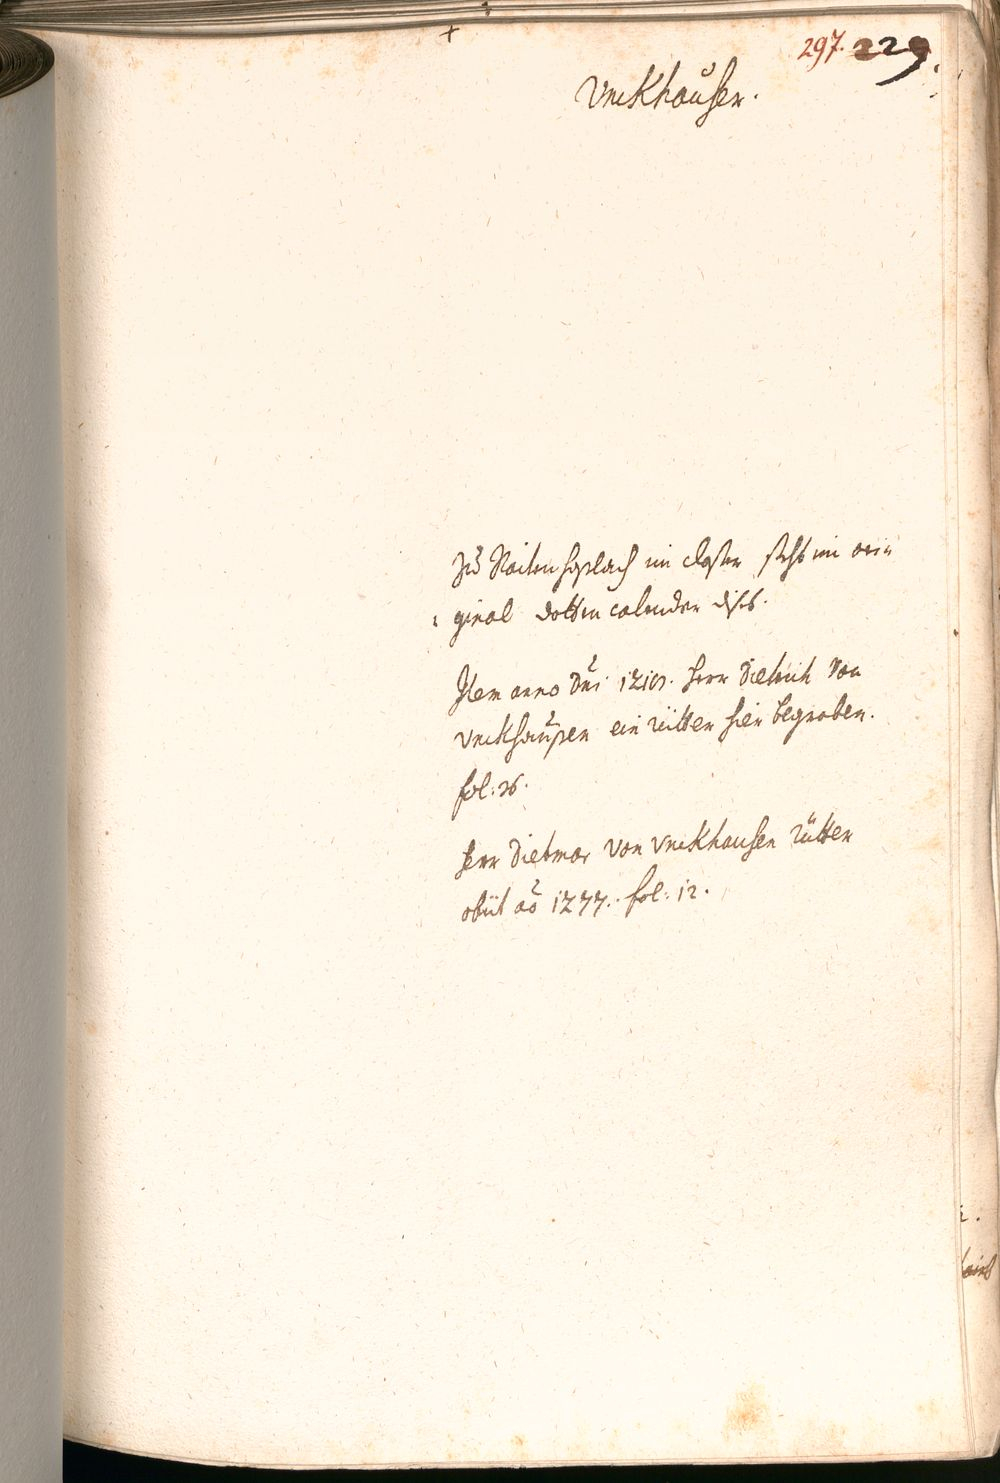 297. 229.
Vnckhaüser.
Zů Raitenhaslach im closter stehts im ori¬
ginal dotten calender diss.
Item anno Dni Herr Dietrich Von
Vnckhaußen ein ritter hier begraben.
fol: 26.
Herr Dietmar Von Vnckhausen Rütter
obiit ao 1277. fol: 12.